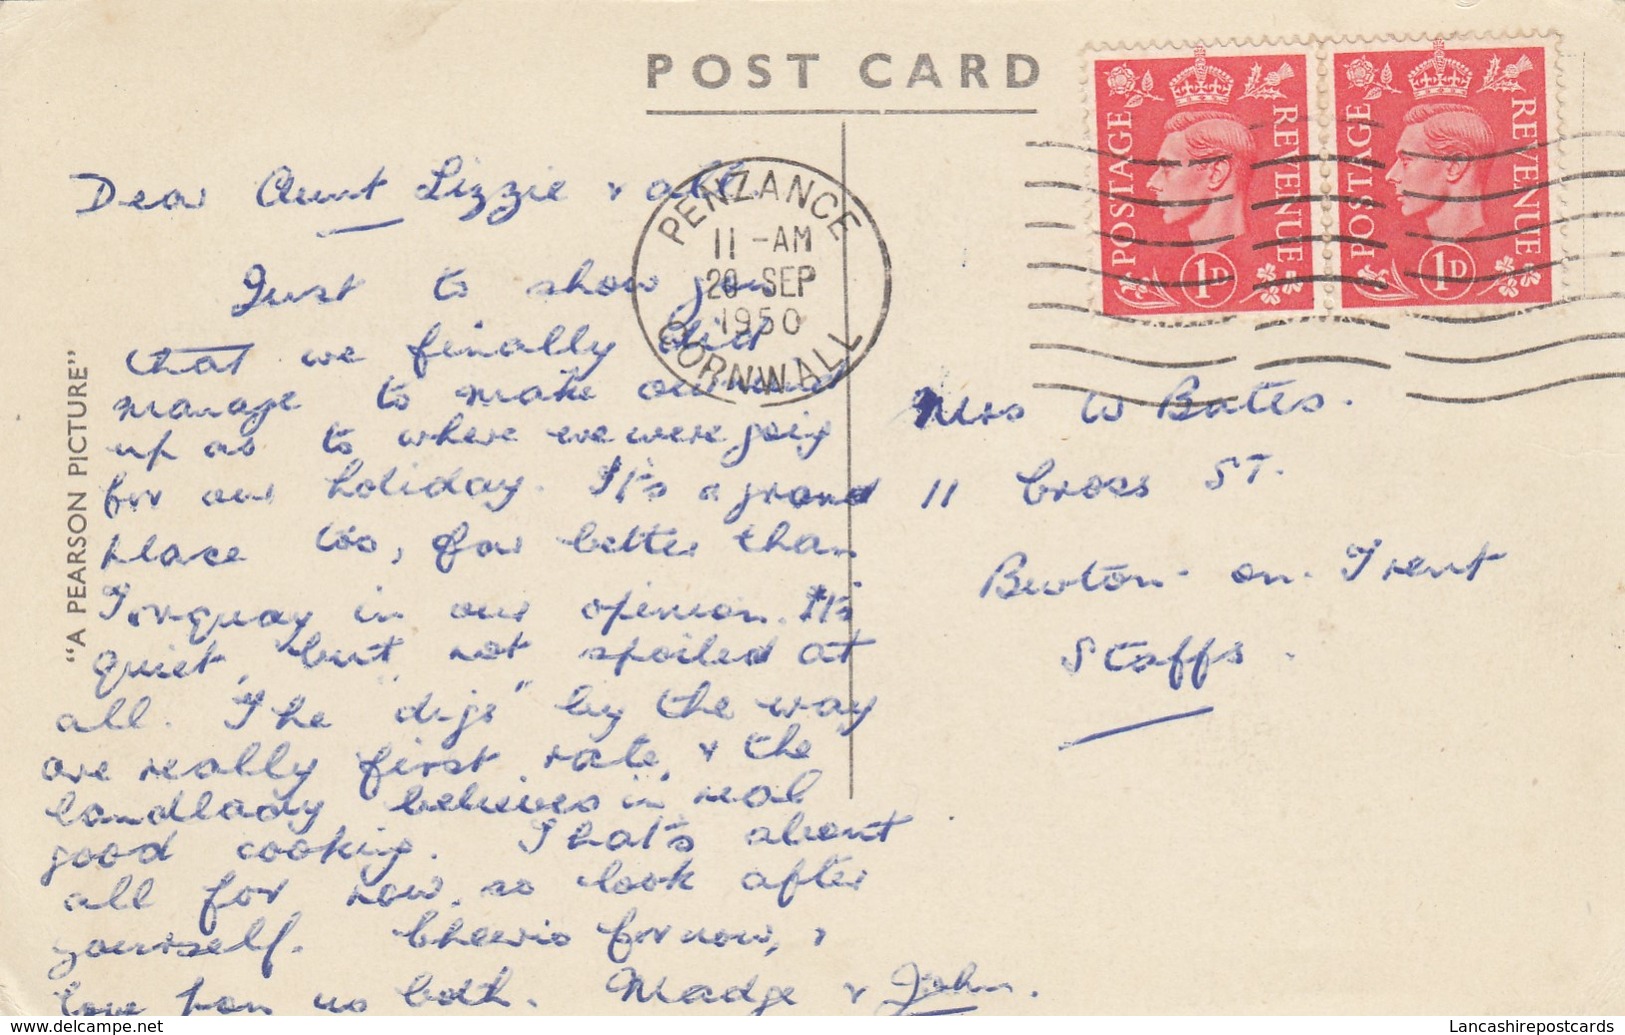 POST CARD
POSTAGE REVENUE 1D
POSTAGE REVENUE 1D
PENZANCE
11 -AM
20 SEP
1950
CORNWALL
"A PEARSON PICTURE"
Dear Aunt Lizzie & all.
Just to show you
that we finally did
manage to make our mind
up as to where we were going
for our holiday. It's a grand
place too, far better than
Torquay in our opinion. It's
quiet, but not spoiled at
all. The "digs" by the way
are really first rate, & the
landlady believes in real
good cooking. That's about
all for now, so look after
yourself. Cheerio for now, &
love from us both. Madge & John.
Mrs W Bates.
11 Cross ST.
Burton-on-Trent
Staffs.
delcampe.net
Lancashirepostcards